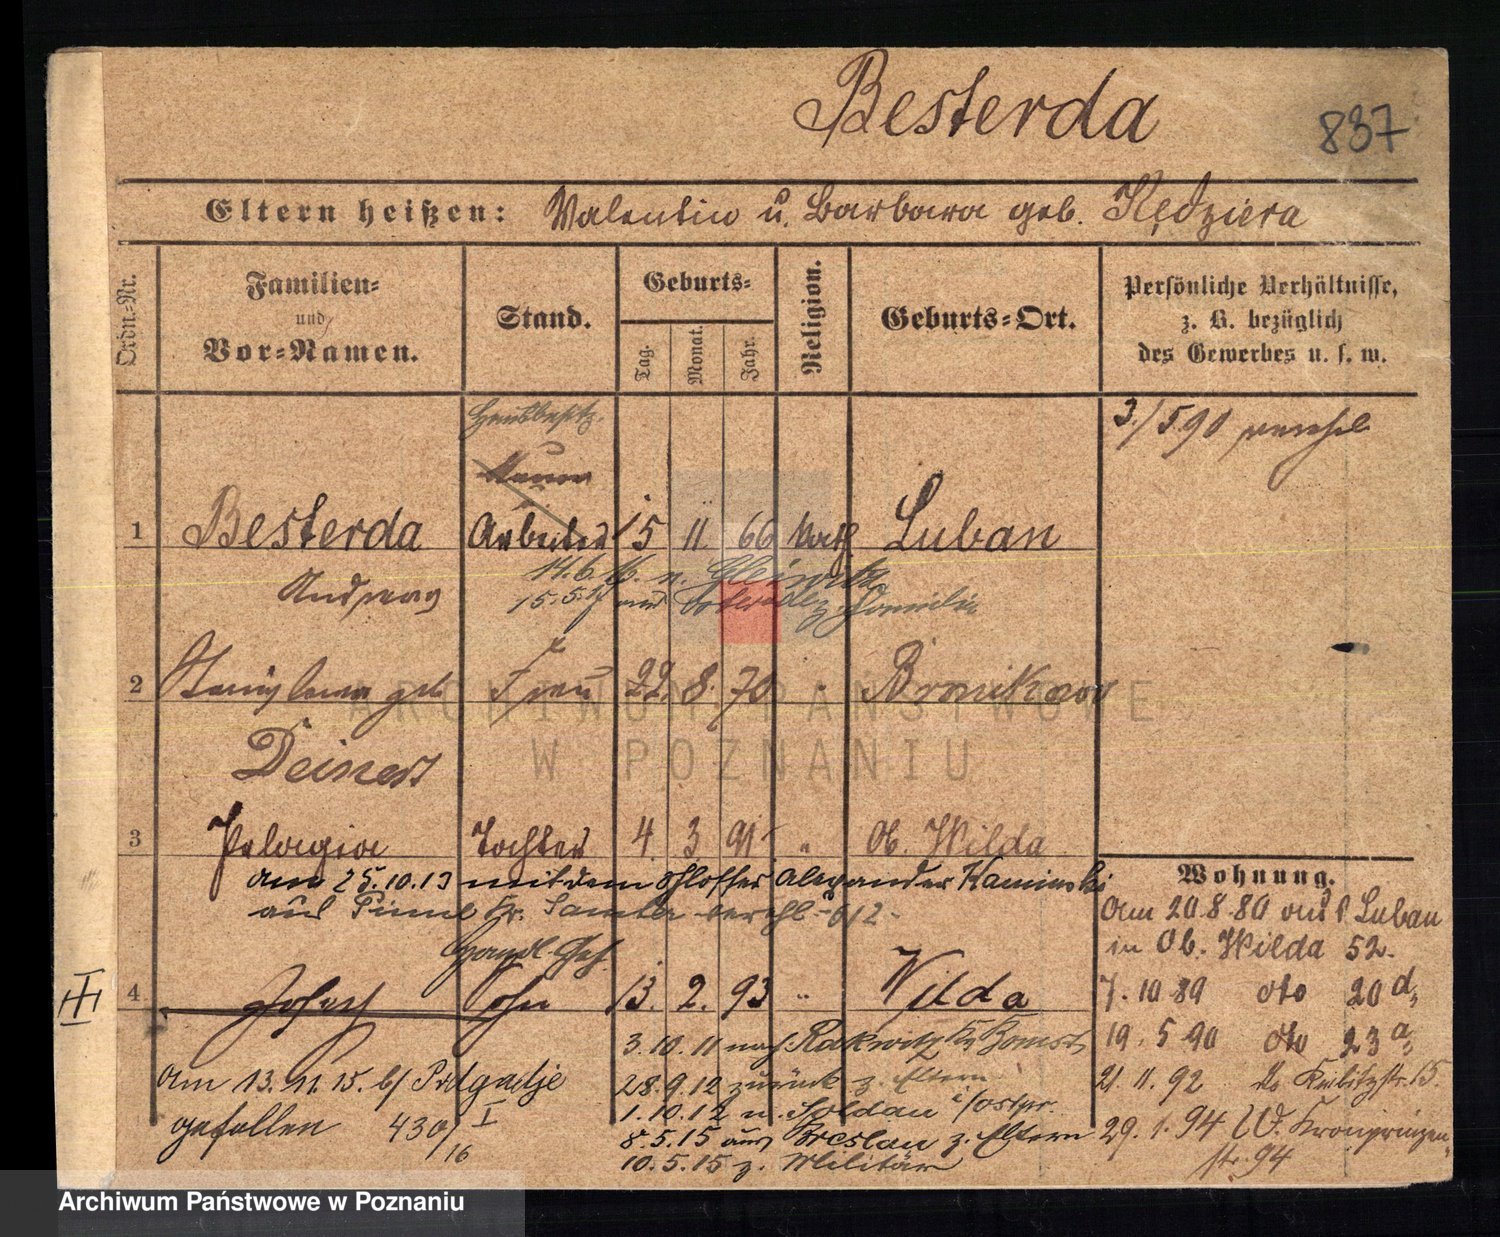 Besterda
837
Eltern heißen: Valentin u. Barbara geb. Kędziera
Ordn.-Nr.
Familien-
und
Vor-Namen.
Stand.
Geburts-
Tag.
Monat.
Jahr.
Religion.
Geburts-Ort.
Persönliche Verhältnisse,
z. B. bezüglich
des Gewerbes u. s. w.
Hausbesitz.
3./5.90 verehel.
Maurer
1 Besterda Arbeiter 15 11. 66 kath Luban
Andreas
14.6. n. Gleiwitz
15.5.17 aus z. Familie
2 Stanislawa geb. Frau 22. 8. 70 "
Deinert
3 Pelagia Tochter 4. 3 91 " Ob. Wilda
am 25.10.13 mit dem Schlosser Alexander Kaminski
aus Pinne Kr. Samter verehl. 612
Handl. Geh.
III
4 Josef Sohn 13. 2. 93 " Wilda
3.10.11 nach Rakwitz Kr. Bomst
28.9.12 zurück z. Eltern
1.10.12 n. Soldau i/Ostpr.
8.5.15 aus Breslau z. Eltern
10.5.15 z. Militär
am 13.11.15. b/
gefallen 430/16 I
Wohnung.
Am 20.8.80 aus Luban
in Ob. Wilda 52.
7.10.89 dto 20d,
19.5.90 dto 23a,
21.11.92 do 15.
29.1.94 W. Kronprinzen
str. 94
ARCHIWUM PAŃSTWOWE
W POZNANIU
Archiwum Państwowe w Poznaniu